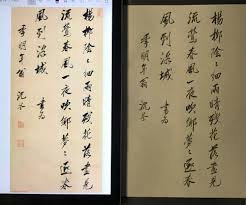 楊柳陰〻細雨晴殘花落盡見
流鶯春風一夜吹鄉夢〻逐春
風到洛城 書為
季明年翁 沈荃
楊柳陰〻細雨晴殘花落盡見
流鶯春風一夜吹鄉夢〻逐春
風到洛城 書為
季明年翁 沈荃